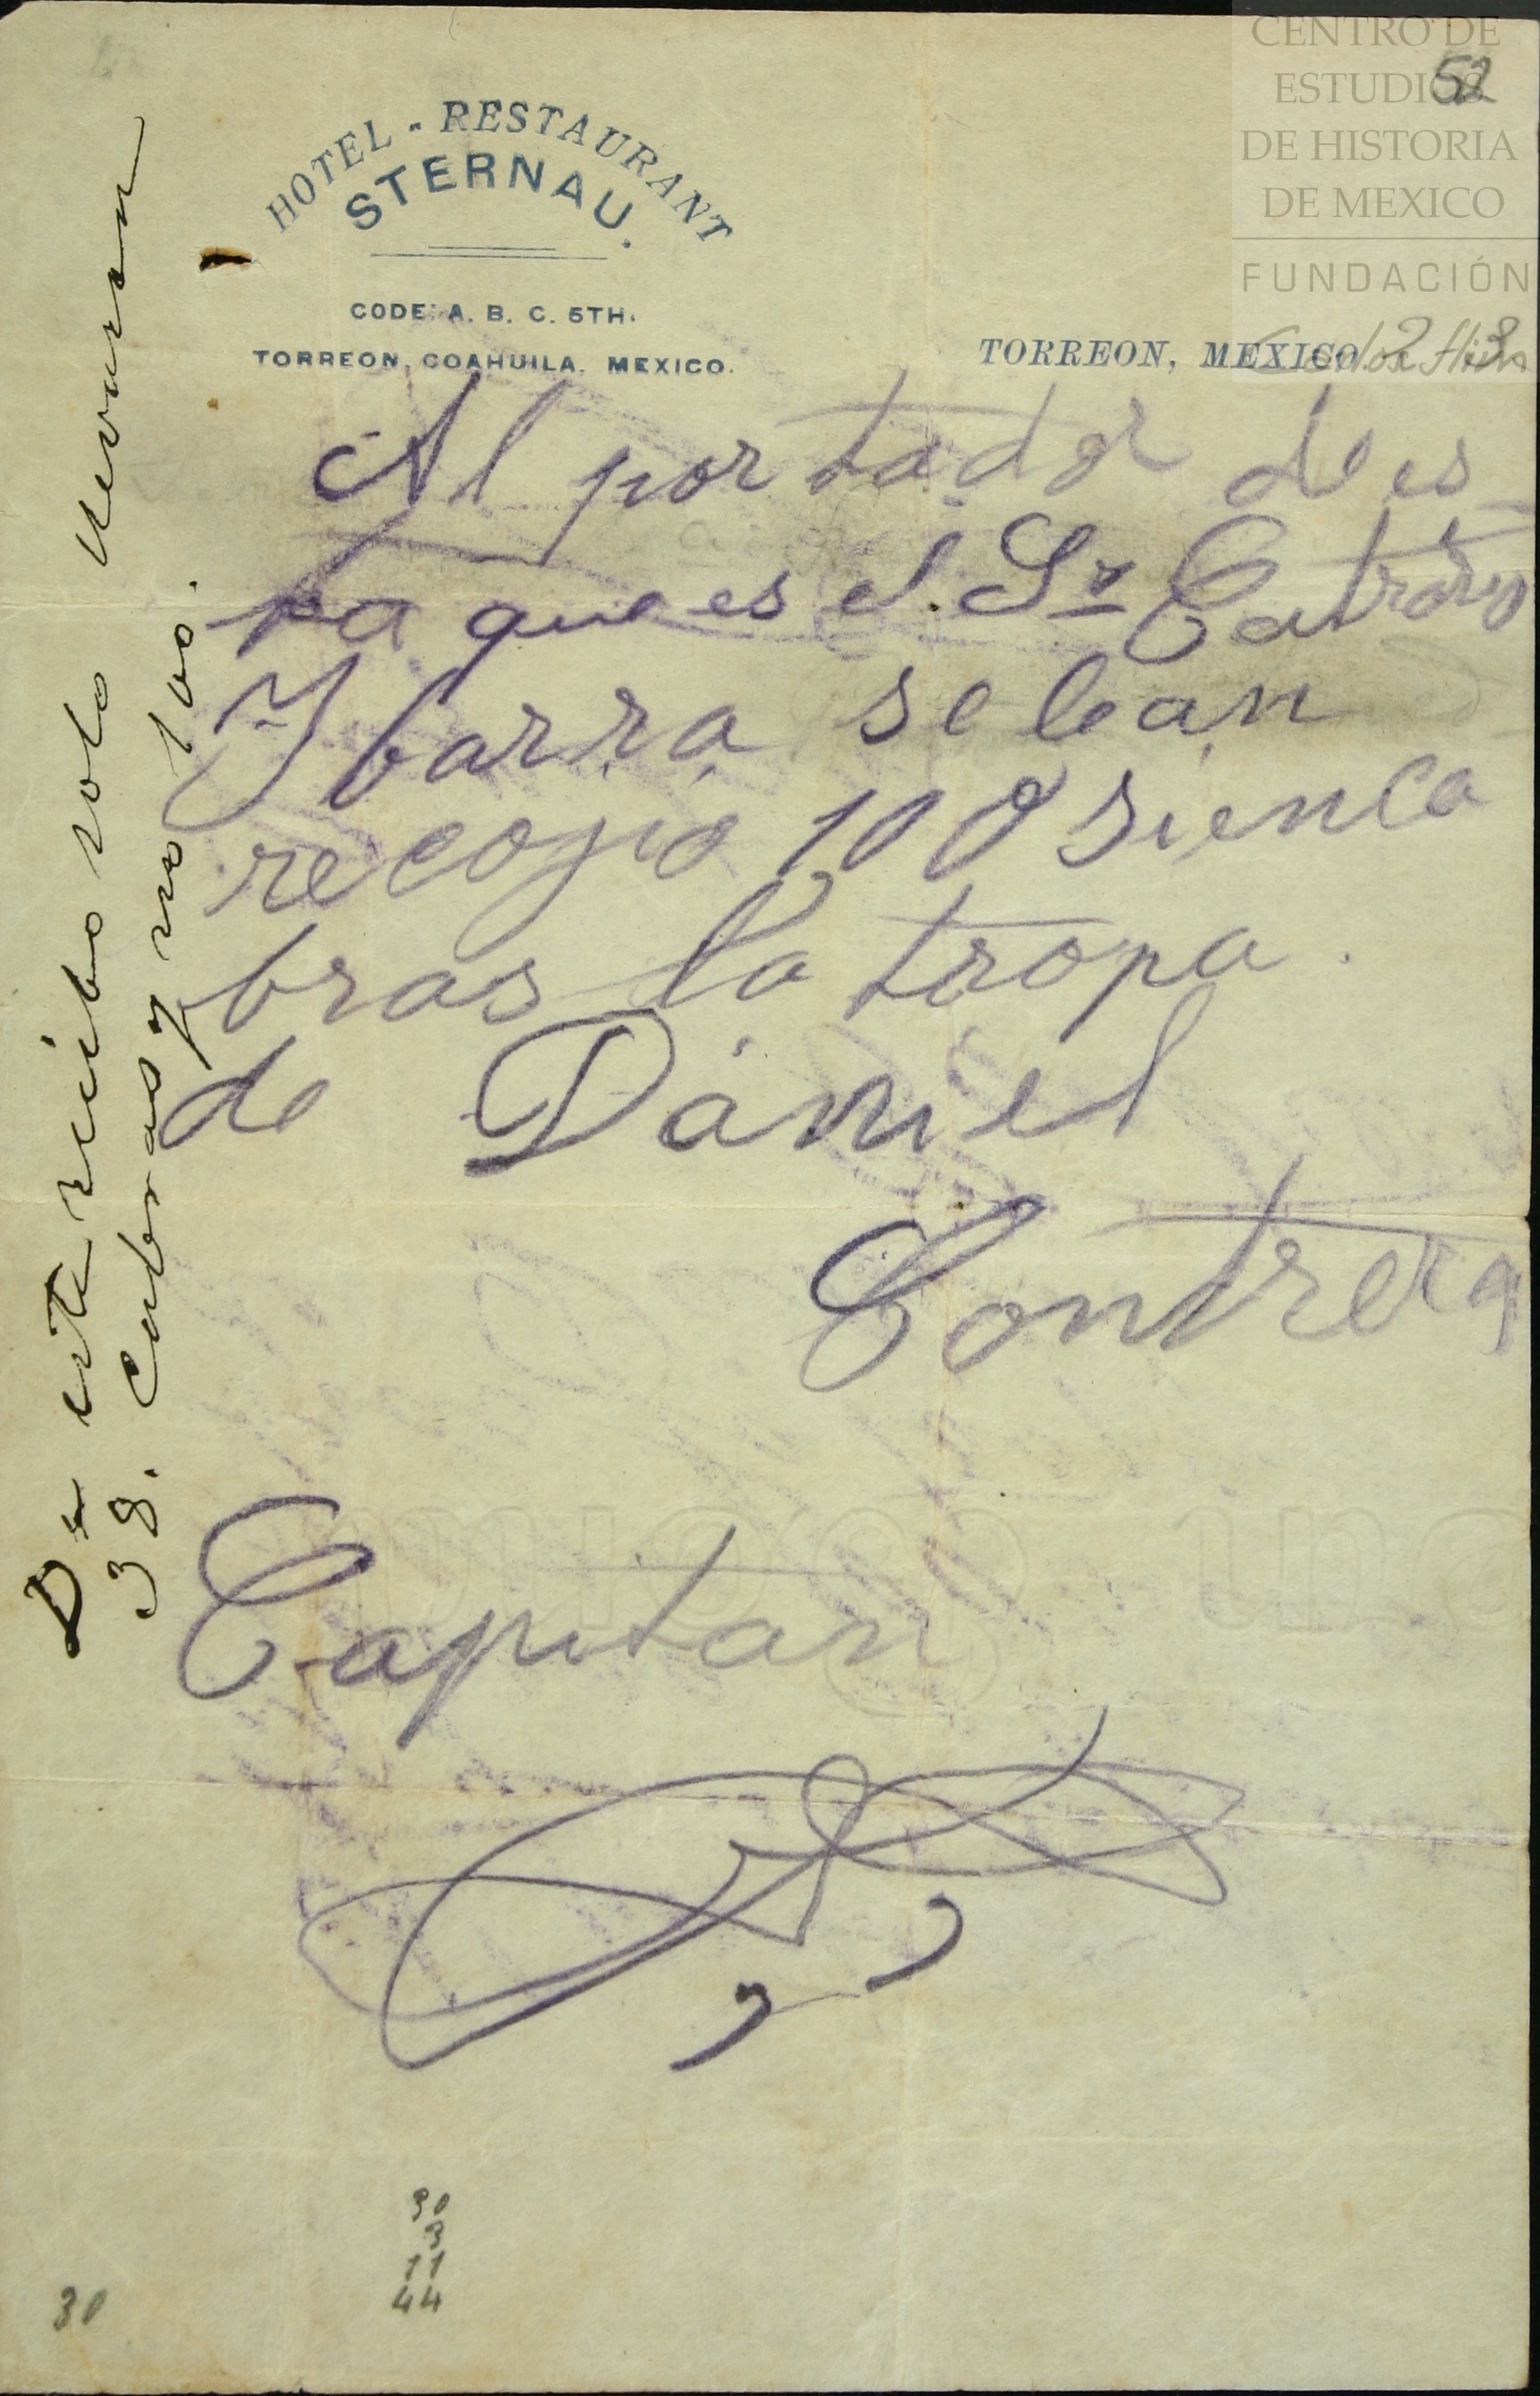 CENTRO DE
ESTUDIOS
DE HISTORIA
DE MEXICO
FUNDACIÓN
52
HOTEL - RESTAURANT
STERNAU.
CODE: A. B. C. 5TH.
TORREON, COAHUILA. MEXICO.
TORREON, MEXICO
Al portador de es
ta que es el Sr
Ybarra se lean
recojio 100 sienca
bras la tropa.
de Daniel
Contrera
Capitan
De este recibo solo llevaron
38. Cabras y no 100.
30
3
11
44
30